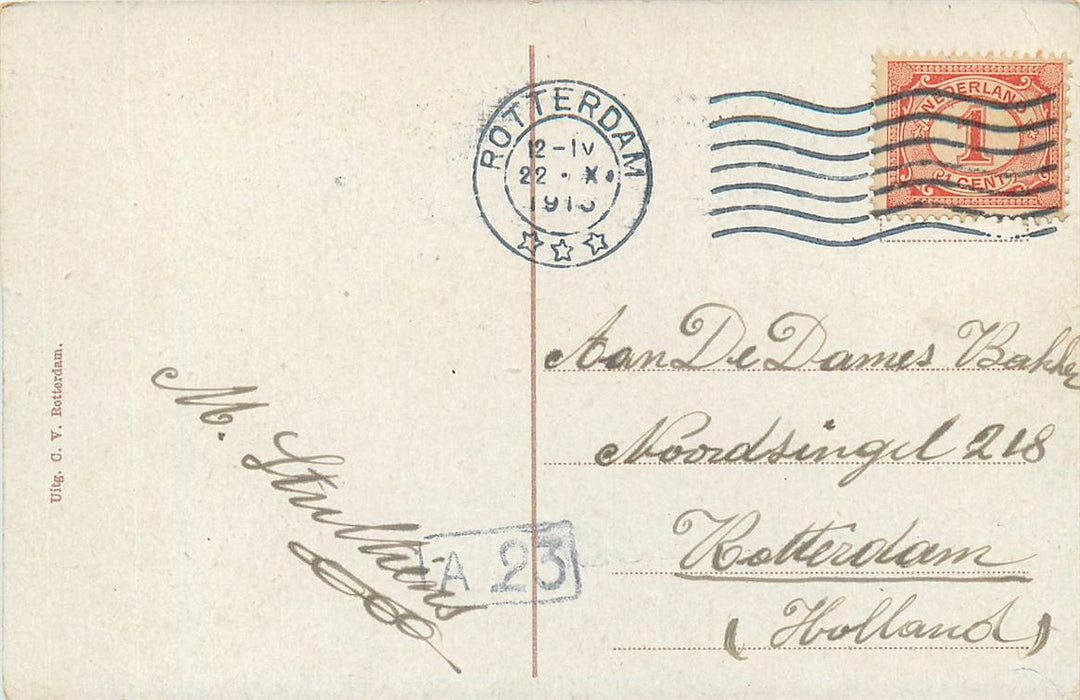 ROTTERDAM
12-IV
22 · X
NEDERLAND
1
(1 CENT)
Aan De Dames Bakker
Noordsingel 218
Rotterdam
(Holland)
M. Stulkens
A 23
Uitg. C. V. Rotterdam.